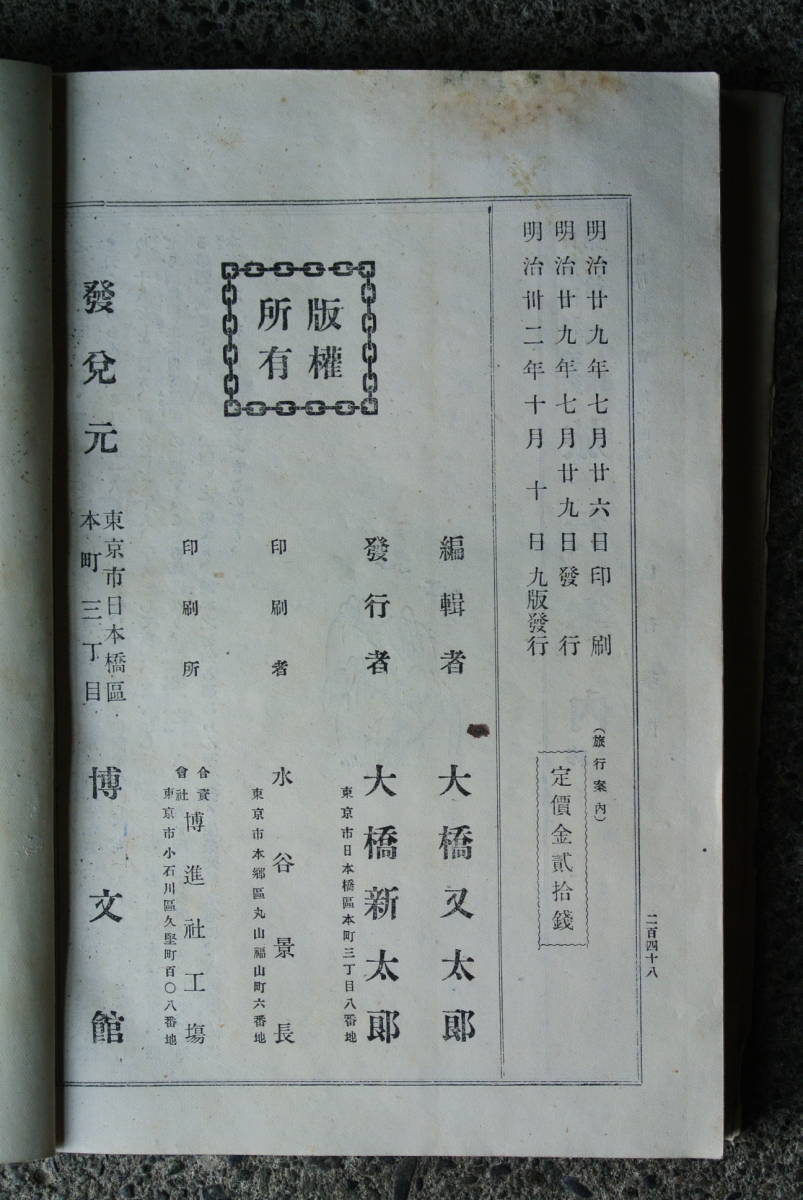 明治廿九年七月廿六日印刷
明治廿九年七月廿九日發行
明治卅二年十月十日九版發行
(旅行案內)
定價金貳拾錢
二百四十八
版權
所有
編輯者 大橋又太郞
發行者 大橋新太郞
東京市日本橋區本町三丁目八番地
印刷者 水谷景長
東京市本鄉區丸山福山町六番地
印刷所 合資會社 博進社工塲
東京市小石川區久堅町百〇八番地
發兌元 東京市日本橋區
本町三丁目 博文館